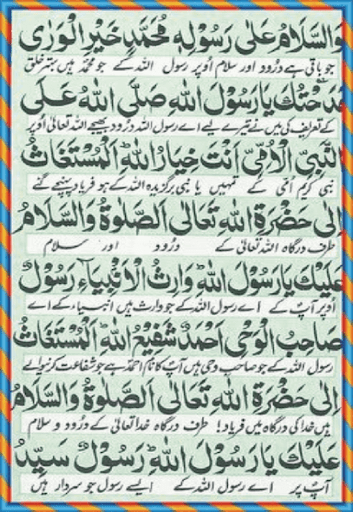 وَالسَّلَامُ عَلٰى رَسُوْلِهٖ مُحَمَّدٍ خَيْرِ الْوَرٰى
جو باقی ہے درُود اور سلام اُوپر رسول اللہ کے جو محمّد ہیں بہتر خلق
مَدَحْتُكَ يَا رَسُوْلَ اللهِ صَلَّى اللهُ عَلَى
کے تعریف کی میں نے تیرے لیے اے رسول اللہ درُود بھیجے اللہ تعالیٰ اُوپر
النَّبِيِّ الْاُمِّيِّ اَنْتَ خِيَارُ اللهِ اَلْمُسْتَغَاثُ
نبی کریم اُمّی کے تمہیں یا نبی برگزیدہ اللہ کے ہو فریاد پہنچے گئے
اِلٰى حَضْرَةِ اللهِ تَعَالٰى اَلصَّلٰوةُ وَالسَّلَامُ
طرف درگاہ اللہ تعالیٰ کے درُود اور سلام
عَلَيْكَ يَا رَسُوْلَ اللهِ وَارِثُ الْاَنْبِيَآءِ رَسُوْلٌ
اُوپر آپؐ کے اے رسول اللہ کے جو وارث ہیں انبیاء کے اے
صَاحِبُ الْوَحْيِ اَحْمَدُ شَفِيْعُ اللهِ اَلْمُسْتَغَاثُ
رسول اللہ کے جو صاحب وحی ہیں آپؐ کا نام احمدؐ ہے جو شفاعت کرنیوالے
اِلٰى حَضْرَةِ اللهِ تَعَالٰى اَلصَّلٰوةُ وَالسَّلَامُ
ہیں خدا کی درگاہ میں فریاد! طرف درگاہ خدا تعالیٰ کے درُود و سلام
عَلَيْكَ يَا رَسُوْلَ اللهِ رَسُوْلٌ سَيِّدُ
آپؐ پر اے رسول اللہ کے ایسے رسول جو سردار ہیں